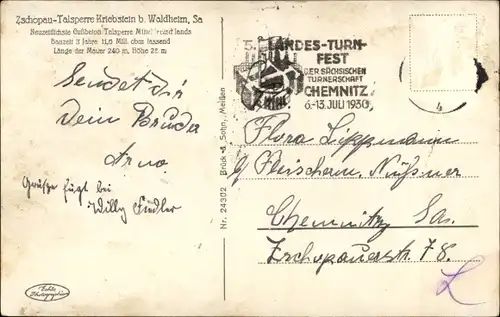 Zschopau-Talsperre Kriebstein b. Waldheim, Sa
Neuzeitlichste Gußbeton Talsperre Mitteldeutschlands
Bauzeit 3 Jahre 11,0 Mill. cbm fassend
Länge der Mauer 240 m, Höhe 28 m
Sendet Dir
Dein Bruder
Arno.
Grüße fügt bei
Willy Fiedler
Echte
Photographie
Nr. 24302 Brück & Sohn, Meißen
5. LANDES-TURN-
FEST
DER SÄCHSISCHEN
TURNERSCHAFT
CHEMNITZ
6.-13. JULI 1930
4
Flora Lippmann
b/ Fleischerm. Nüßner
Chemnitz Sa.
Zschopauerstr 78.
L